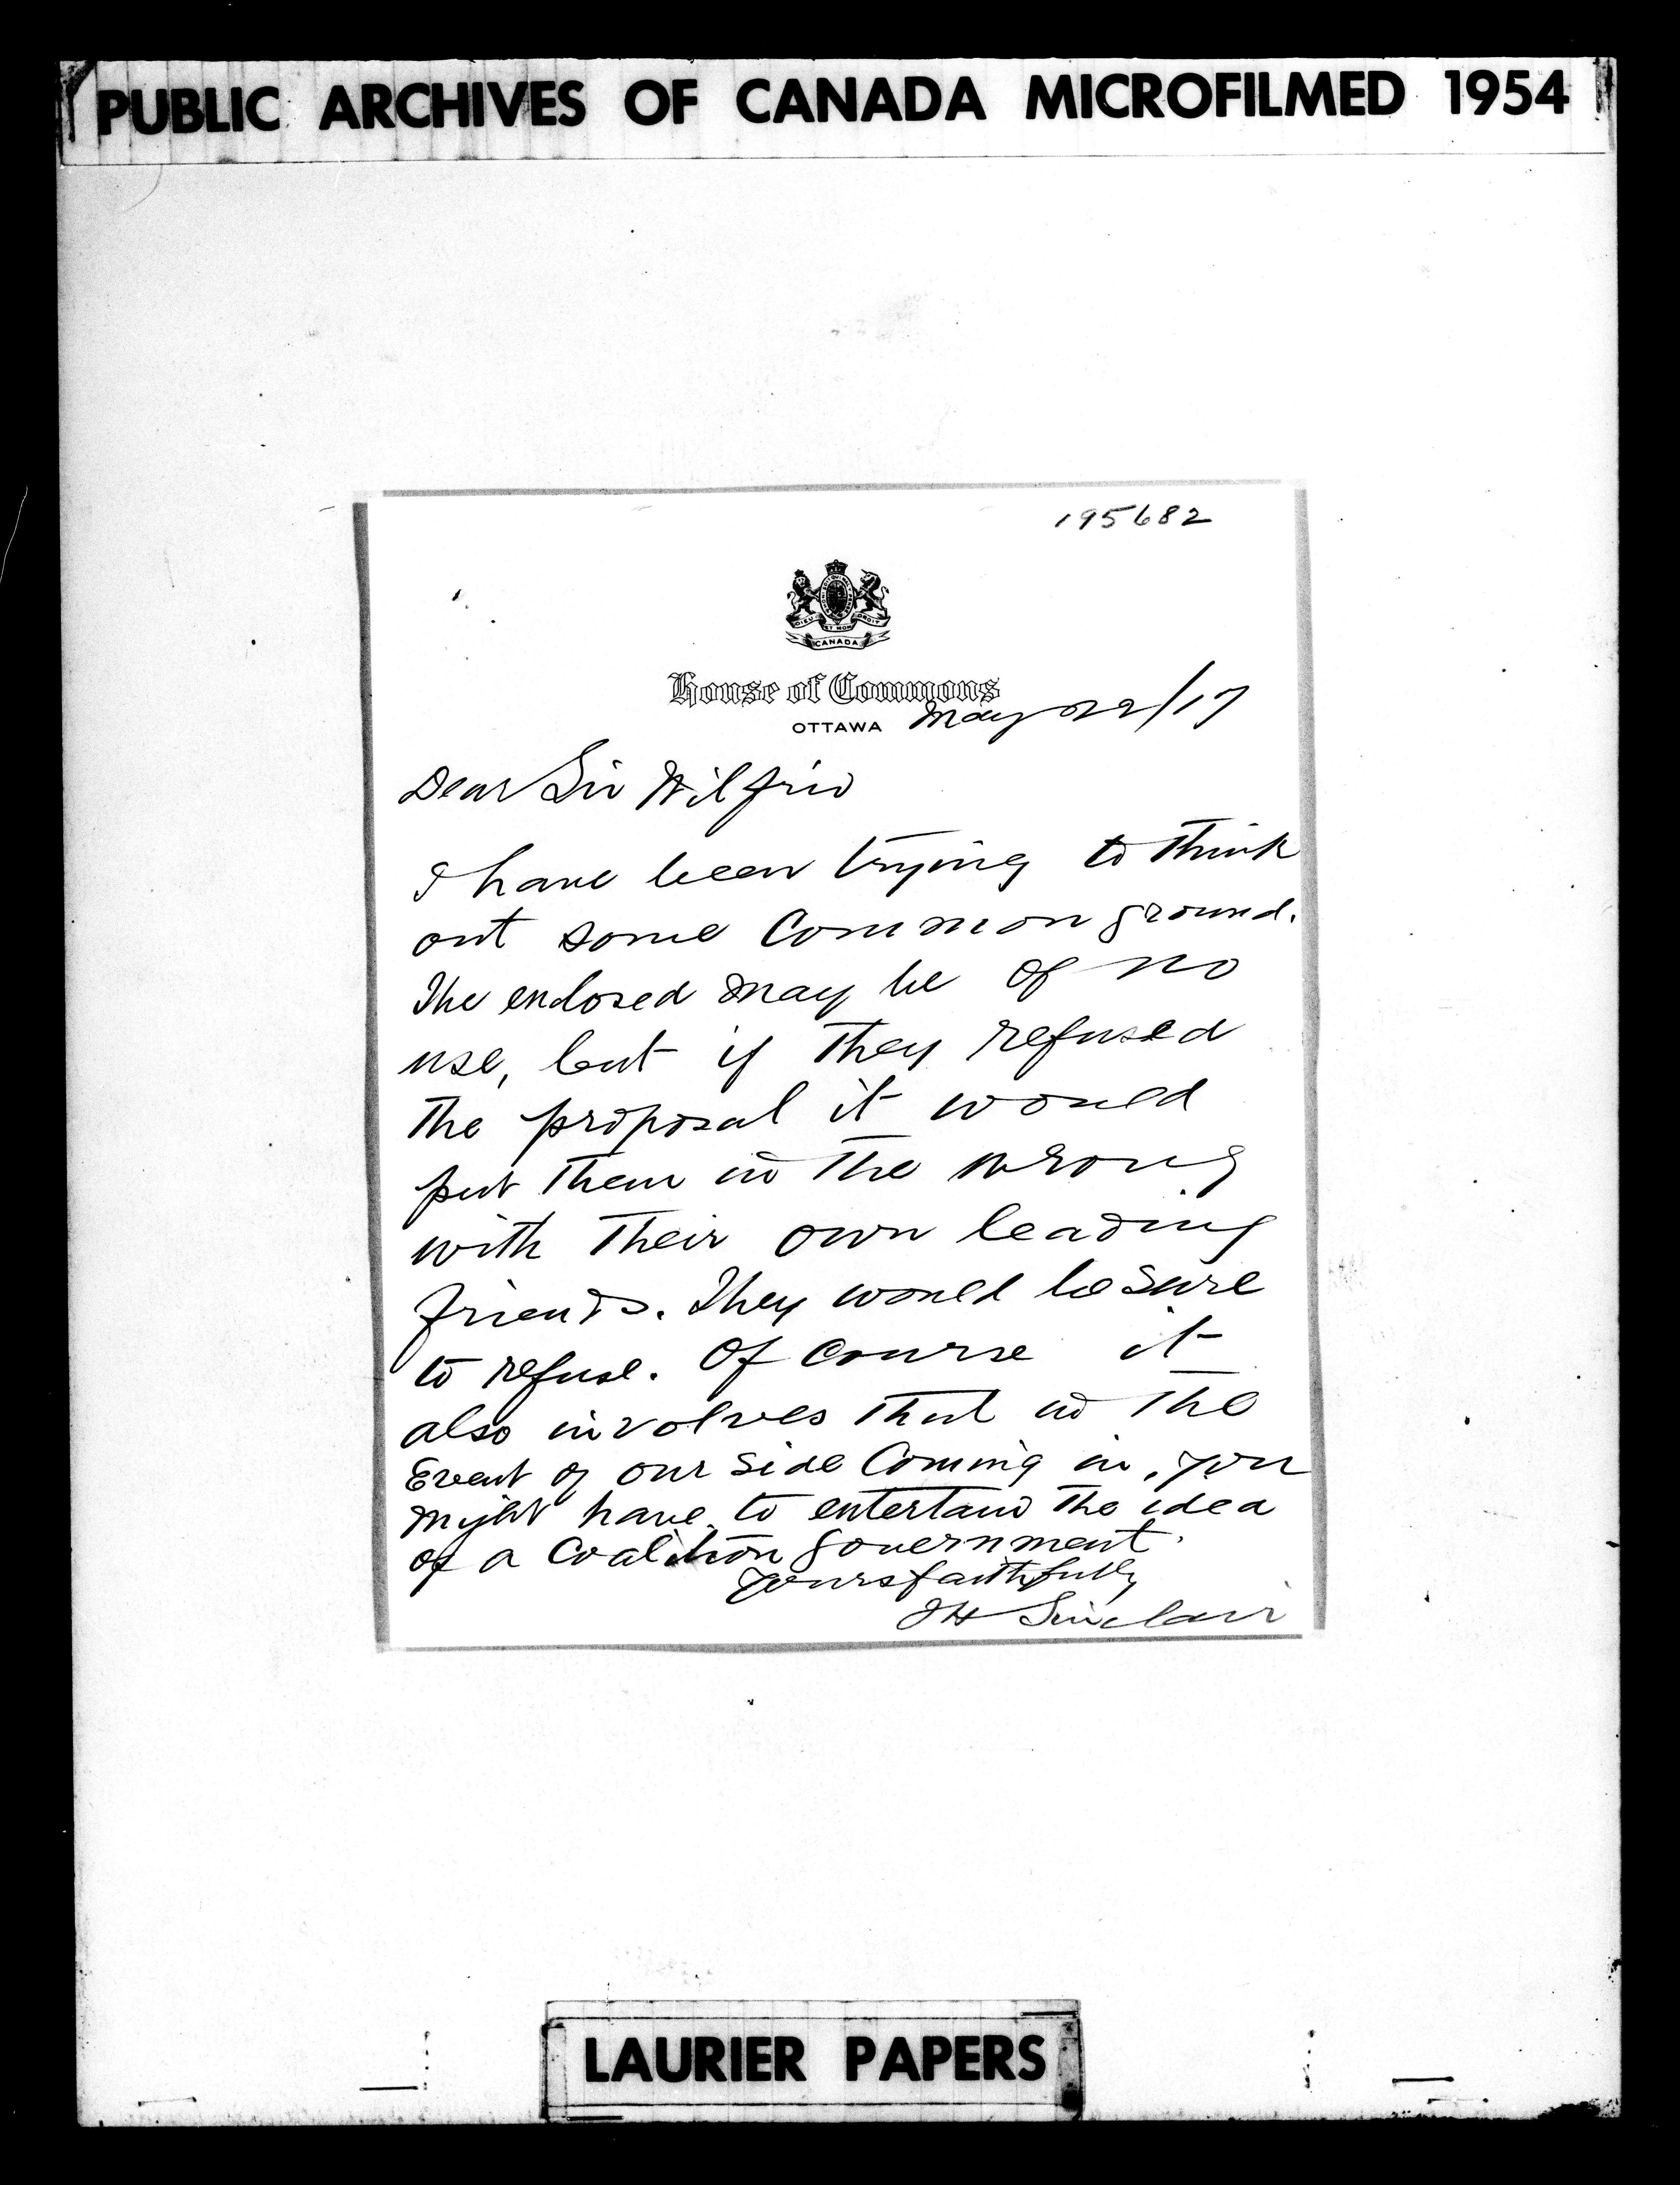 PUBLIC ARCHIVES OF CANADA MICROFILMED 1954
195682
DIEU ET MON DROIT
CANADA
House of Commons
OTTAWA May 22/17
Dear Sir Wilfrid
I have been trying to think
out some Common ground.
The enclosed may be of no
use, but if they refused
the proposal it would
put them in the wrong
with their own leading
friends. They would be sure
to refuse. Of course it
also involves that in the
Event of our side Coming in, you
might have to entertain the idea
of a Coalition government.
Yours faithfully
JH Sinclair
LAURIER PAPERS